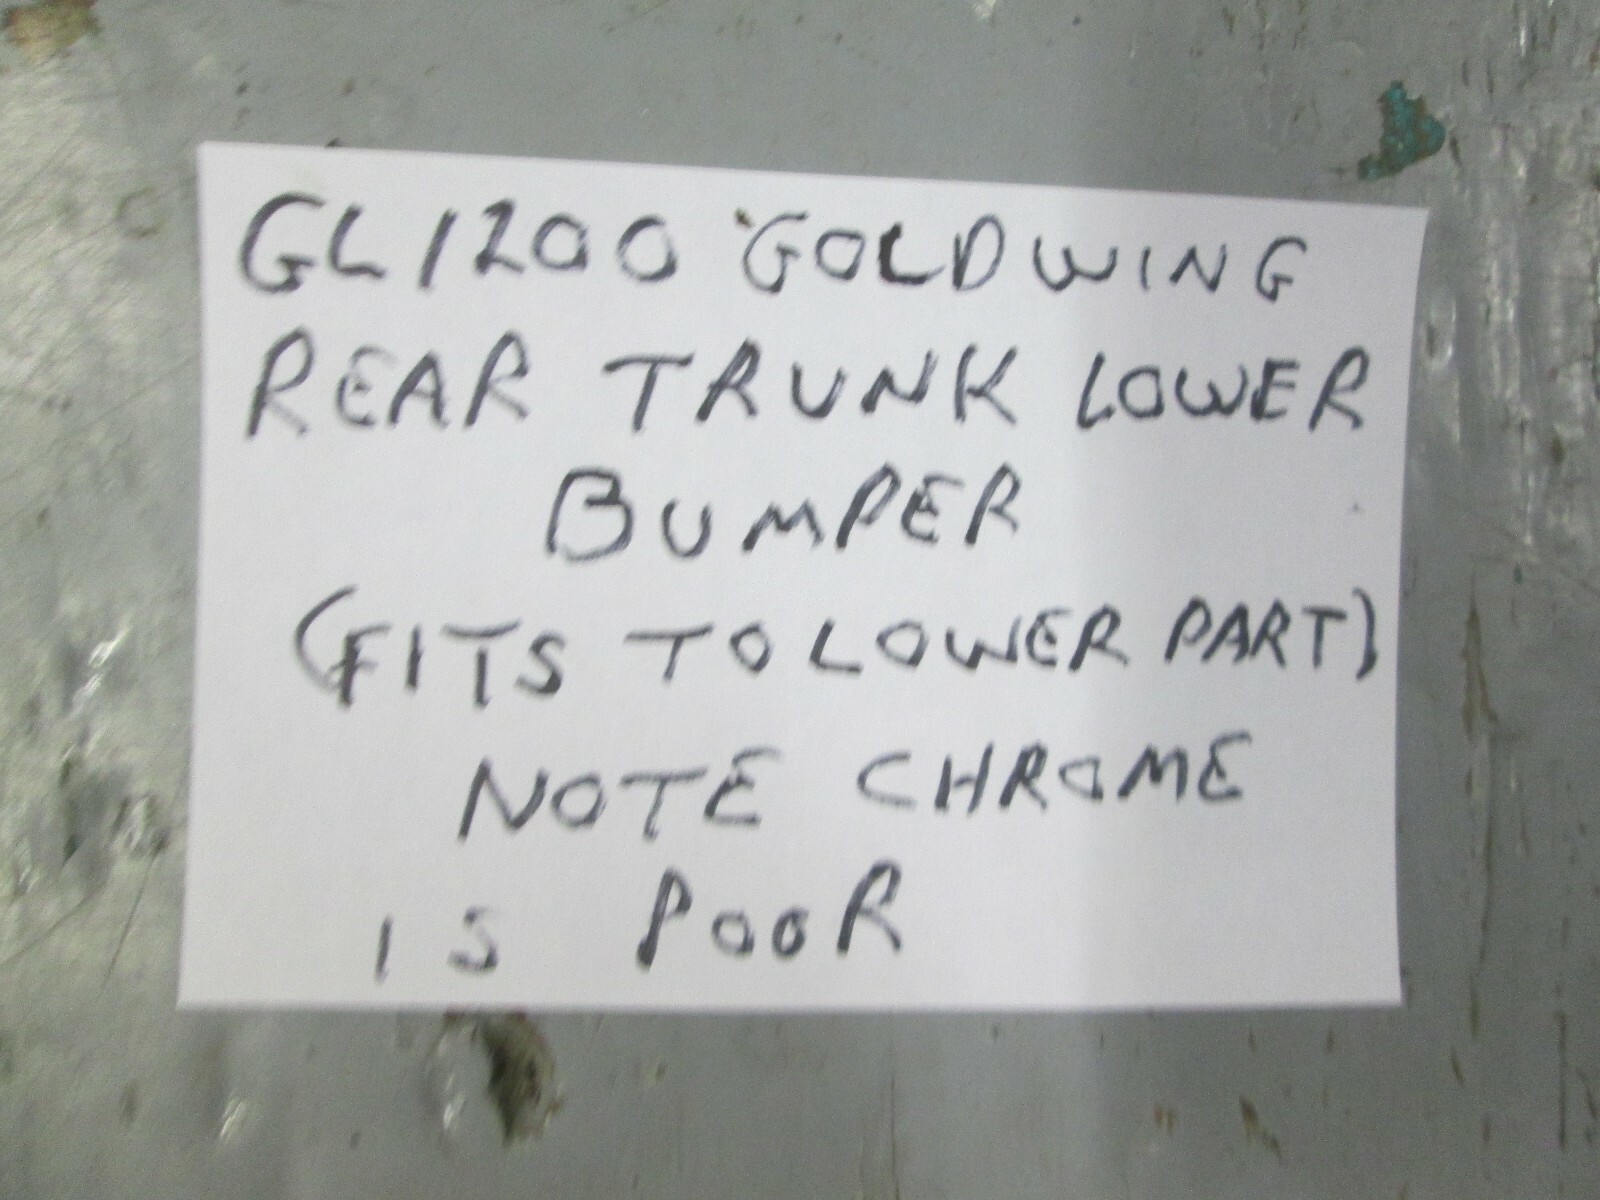 GL1200 GOLDWING
REAR TRUNK LOWER
BUMPER
(FITS TO LOWER PART)
NOTE CHROME
IS POOR